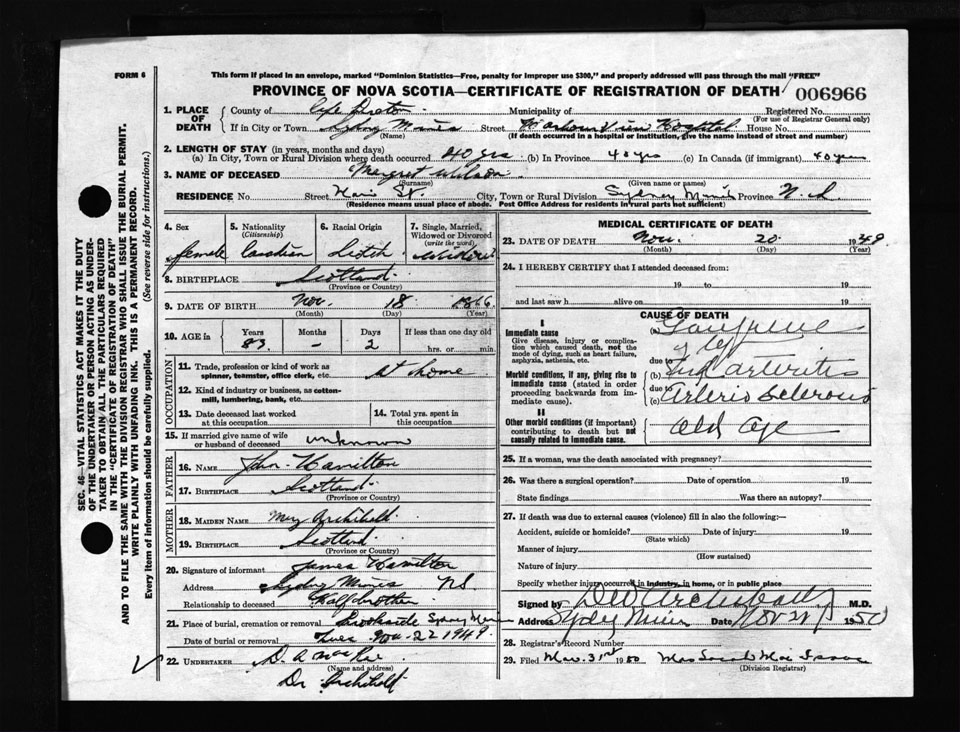 FORM 6
This form if placed in an envelope, marked "Dominion Statistics—Free, penalty for improper use $300," and properly addressed will pass through the mail "FREE"
PROVINCE OF NOVA SCOTIA—CERTIFICATE OF REGISTRATION OF DEATH
006966
1. PLACE OF DEATH
County of Cape Breton Municipality of Registered No.
(For use of Registrar General only)
If in City or Town Sydney Mines Street Harbour View Hospital House No.
(Name) (If death occurred in a hospital or institution, give the name instead of street and number)
2. LENGTH OF STAY (in years, months and days)
(a) In City, Town or Rural Division where death occurred 40 yrs (b) In Province 40 yrs (c) In Canada (if immigrant) 40 years
3. NAME OF DECEASED Margret Wilson
(Surname) (Given name or names)
RESIDENCE No. Street Main St. City, Town or Rural Division Sydney Mines Province N.S.
(Residence means usual place of abode. Post Office Address for residents in rural parts not sufficient)
4. Sex
female
5. Nationality
(Citizenship)
Canadian
6. Racial Origin
Scotch
7. Single, Married, Widowed or Divorced
(write the word)
8. BIRTHPLACE Scotland
(Province or Country)
9. DATE OF BIRTH Nov. 18 1866
(Month) (Day) (Year)
10. AGE in
Years Months Days If less than one day old
83 – 2 hrs. or min.
OCCUPATION
11. Trade, profession or kind of work as spinner, teamster, office clerk, etc. at home
12. Kind of industry or business, as cotton-mill, lumbering, bank, etc.
13. Date deceased last worked at this occupation
14. Total yrs. spent in this occupation
15. If married give name of wife or husband of deceased unknown
FATHER
16. NAME John Hamilton
17. BIRTHPLACE Scotland
(Province or Country)
MOTHER
18. MAIDEN NAME Mary Archibald
19. BIRTHPLACE Scotland
(Province or Country)
20. Signature of informant James Hamilton
Address Sydney Mines NS.
Relationship to deceased Half brother
21. Place of burial, cremation or removal Brookside Sydney Mines
Date of burial or removal Tues. Nov-22 1949
22. UNDERTAKER D. A. MacRae
(Name and address)
Dr Archibald
MEDICAL CERTIFICATE OF DEATH
23. DATE OF DEATH Nov. 20 1949
(Month) (Day) (Year)
24. I HEREBY CERTIFY that I attended deceased from:
19 to 19
and last saw h alive on 19
CAUSE OF DEATH
I
Immediate cause
Give disease, injury or complication which caused death, not the mode of dying, such as heart failure, asphyxia, asthenia, etc.
(a) Gangrene
of leg
due to
Morbid conditions, if any, giving rise to immediate cause (stated in order proceeding backwards from immediate cause).
(b) End arteritis
due to
(c) Arterio Sclerosis
II
Other morbid conditions (if important) contributing to death but not causally related to immediate cause.
Old Age
25. If a woman, was the death associated with pregnancy?
26. Was there a surgical operation? Date of operation 19
State findings Was there an autopsy?
27. If death was due to external causes (violence) fill in also the following:—
Accident, suicide or homicide? Date of injury: 19
(State which)
Manner of injury
(How sustained)
Nature of injury
Specify whether injury occurred in industry, in home, or in public place
Signed by Archibald M.D.
Address Sydney Mines Date Nov 1950
28. Registrar's Record Number
29. Filed Mar. 31st 1950 Mrs Sarah Mac Isaac
(Division Registrar)
SEC. 46—VITAL STATISTICS ACT MAKES IT THE DUTY
OF THE UNDERTAKER OR PERSON ACTING AS UNDER-
TAKER TO OBTAIN ALL THE PARTICULARS REQUIRED
IN THE "CERTIFICATE OF REGISTRATION OF DEATH"
AND TO FILE THE SAME WITH THE DIVISION REGISTRAR WHO SHALL ISSUE THE BURIAL PERMIT.
WRITE PLAINLY WITH UNFADING INK. THIS IS A PERMANENT RECORD.
Every item of information should be carefully supplied. (See reverse side for instructions.)